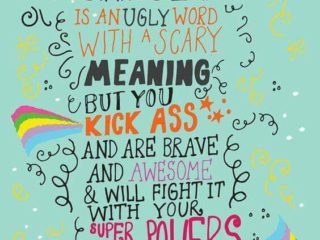 IS AN UGLY WORD
WITH A SCARY
MEANING
BUT YOU
KICK ASS
AND ARE BRAVE
AND AWESOME
& WILL FIGHT IT
WITH YOUR
SUPER POWERS